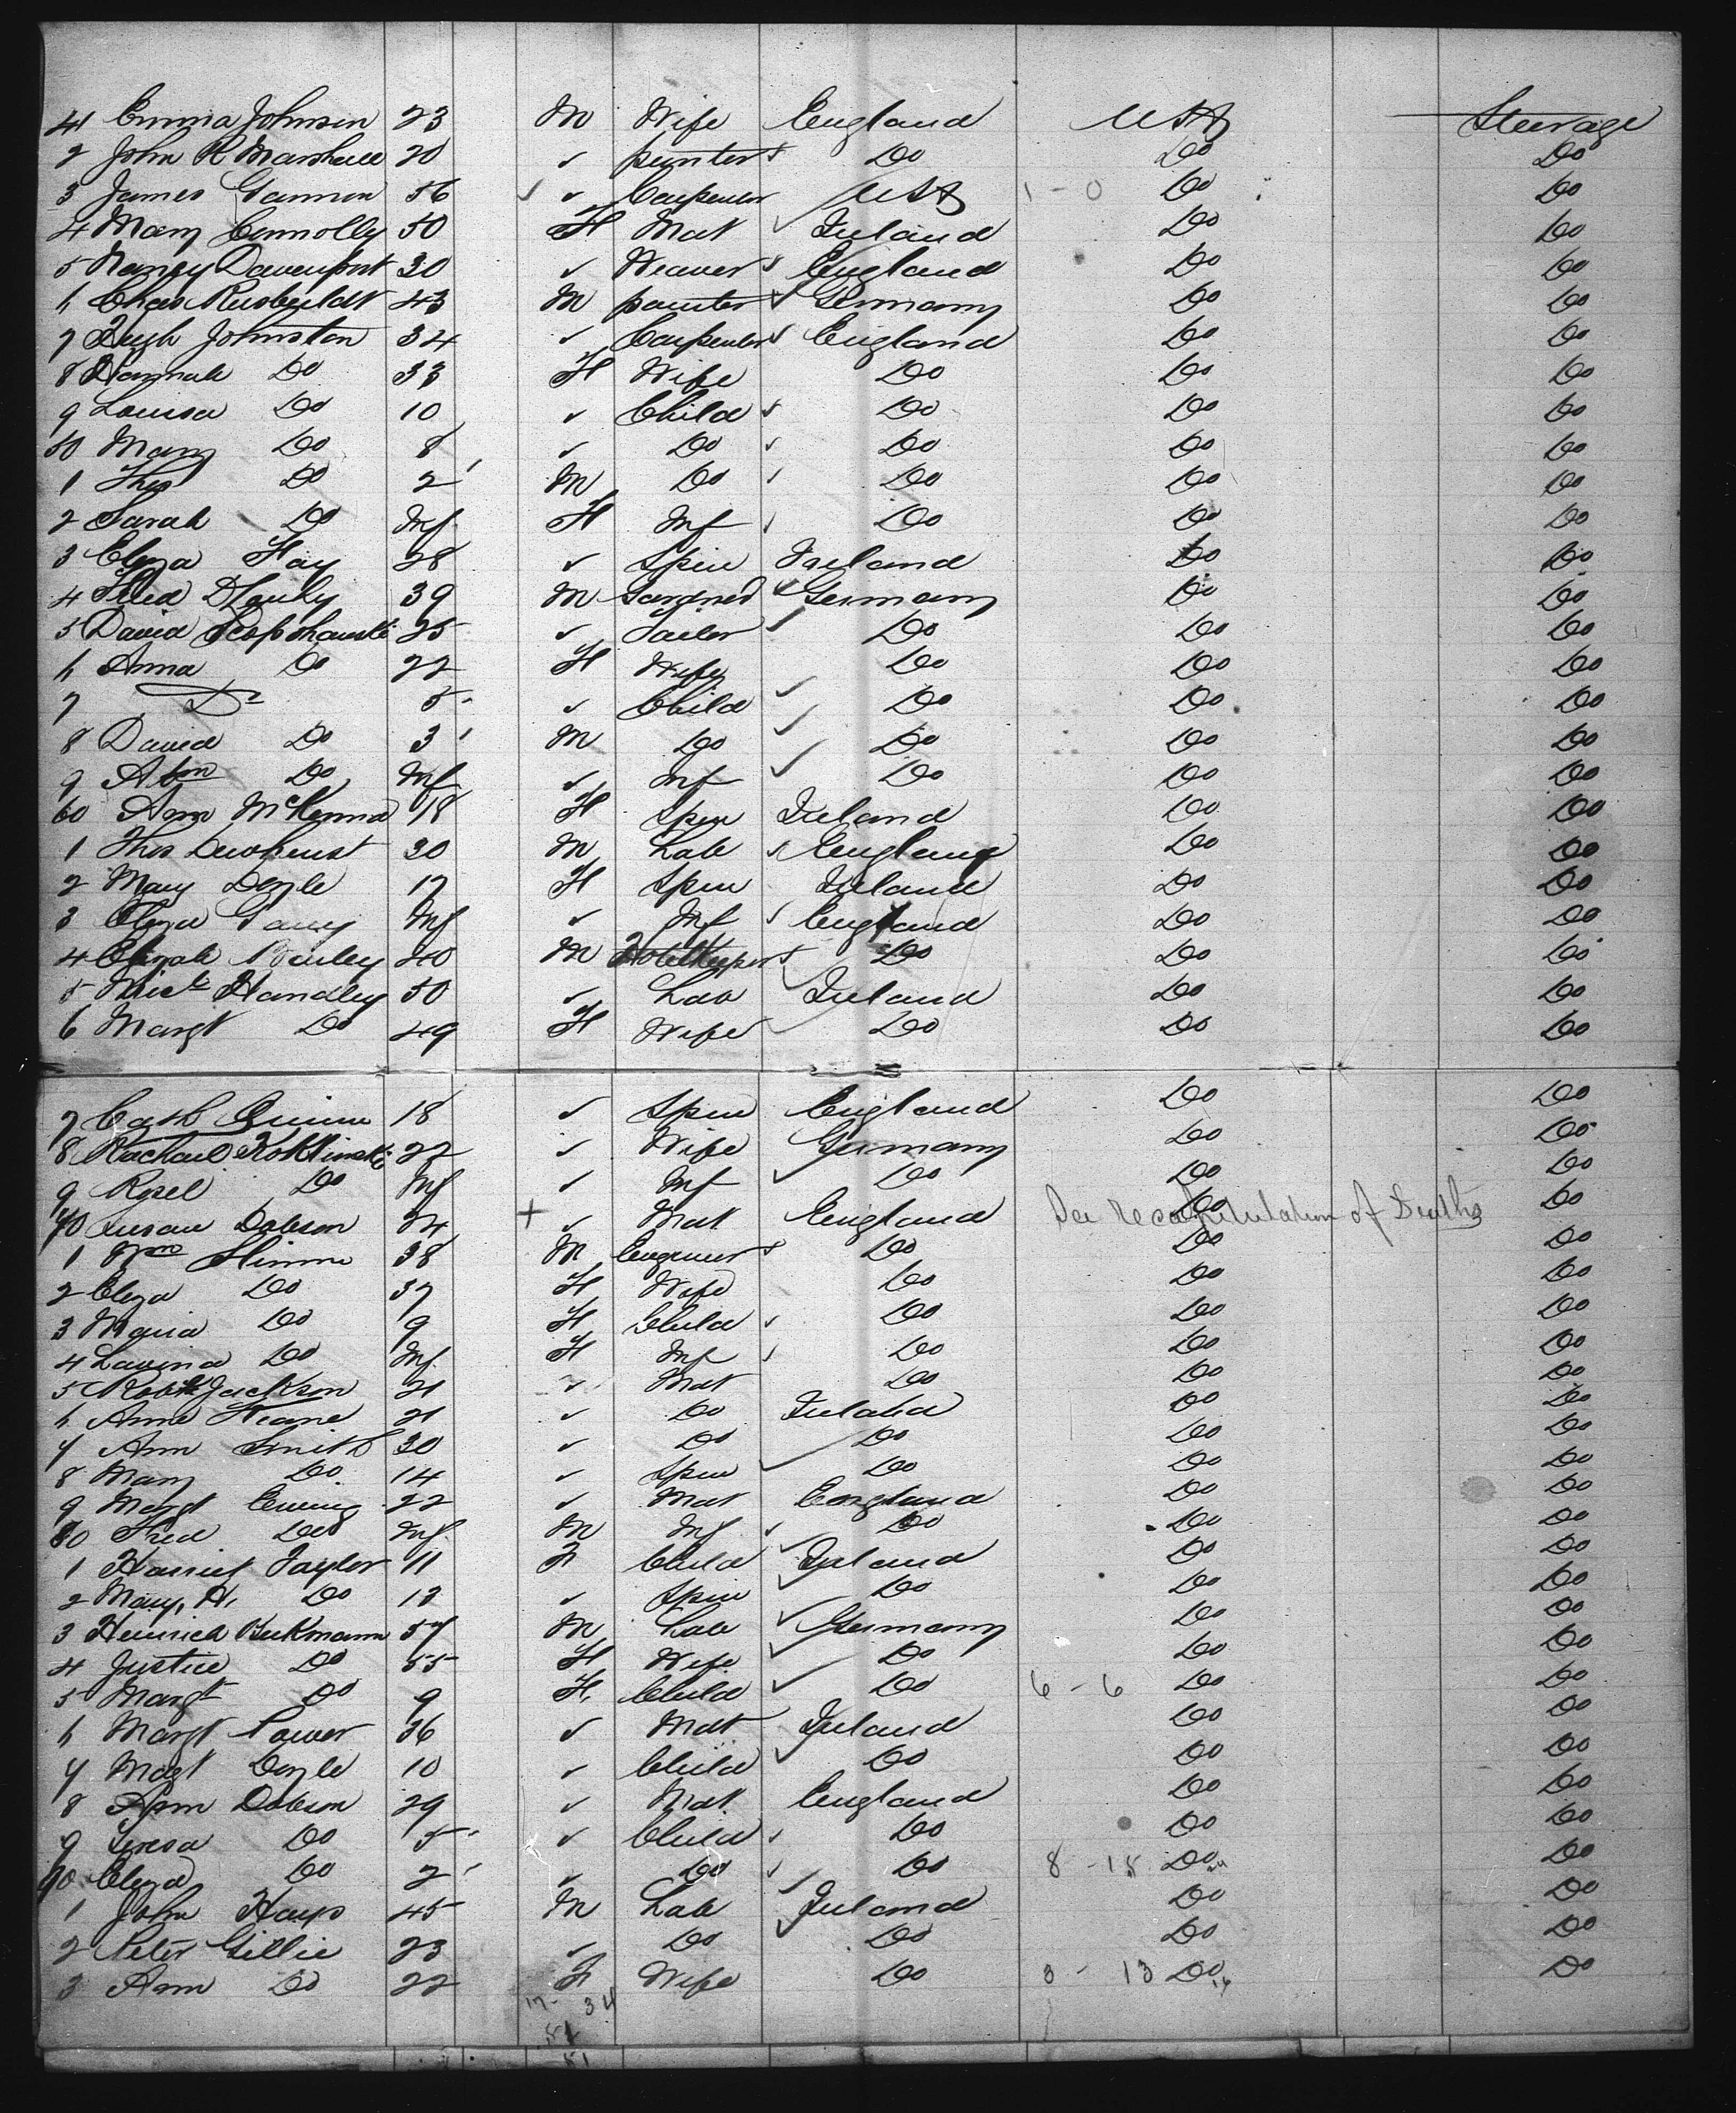 41 Emma Johnson 23 M Wife England USA Steerage
2 John R Marshall 20 ✓ Do Do Do
3 James Gannon 56 ✓ ✓ Carpenter USA 1 - 0 Do Do
4 Mary Connolly 50 F Mat Ireland Do Do
5 Nancy Davenport 30 ✓ Weaver England Do Do
6 Chas 43 M painter Germany Do Do
7 Hugh Johnston 34 ✓ Carpenter England Do Do
8 Hannah Do 33 F Wife Do Do Do
9 Louisa Do 10 ✓ Child Do Do Do
50 Mary Do 8 ✓ Do Do Do Do
1 Thos Do 2 M Do Do Do Do
2 Sarah Do Inf F Inf Do Do Do
3 Eliza Hay 28 ✓ Spin Ireland Do Do
4 Fred 39 M Germany Do Do
5 David 25 ✓ Tailor Do Do Do
6 Anna Do 22 F Wife Do Do Do
7 Do 5 ✓ Child Do Do Do
8 David Do 3 M Do Do Do Do
9 Abm Do Inf ✓ Inf Do Do Do
60 Ann McKenna 18 F Spin Ireland Do Do
1 Thos Dewhurst 30 M Lab England Do Do
2 Mary Doyle 17 F Spin Ireland Do Do
3 Eliza Inf ✓ Inf England Do Do
4 Elijah 40 M Hotelkeeper Do Do Do
5 Mick Handley 50 ✓ Lab Ireland Do Do
6 Margt Do 49 F Wife Do Do Do
7 Cath Quinn 18 ✓ Spin England Do Do
8 Rachael 22 ✓ Wife Germany Do Do
9 Do Inf ✓ Inf Do Do Do
70 Susan Dobson + ✓ Mat England Do See recapitulation of Deaths Do
1 Wm 38 M Engineer Do Do Do
2 Eliza Do 37 F Wife Do Do Do
3 Maria Do 9 F Child Do Do Do
4 Lavina Do Inf F Inf Do Do Do
5 Jackson 21 ✓ Mat Do Do Do
6 Anne Keane 21 ✓ Do Ireland Do Do
7 Ann Smith 30 ✓ Do Do Do Do
8 Mary Do 14 ✓ Spin Do Do Do
9 Margt Ewing 22 ✓ Mat England Do Do
80 Fred Do Inf M Inf Do Do Do
1 Harriet Taylor 11 F Child Ireland Do Do
2 Mary, A. Do 13 ✓ Spin Do Do Do
3 Heinrich Beckmann 57 M Lab Germany Do Do
4 Justice Do 55 F Wife Do Do Do
5 Margt Do 9 F. Child Do 6 - 6 Do Do
6 Margt Power 36 ✓ Mat Ireland Do Do
7 Magt Doyle 10 ✓ Child Do Do Do
8 Ann Dobson 29 ✓ Mat England Do Do
9 Teresa Do 5 ✓ Child Do Do Do
90 Eliza Do 2 ✓ Do Do 8 - 18 Do Do
1 John Hays 45 M Lab Ireland Do Do
2 Peter Gillie 23 ✓ Do Do Do Do
3 Ann Do 22 F Wife Do 3 - 13 Do 16 Do
17 - 34
51
51